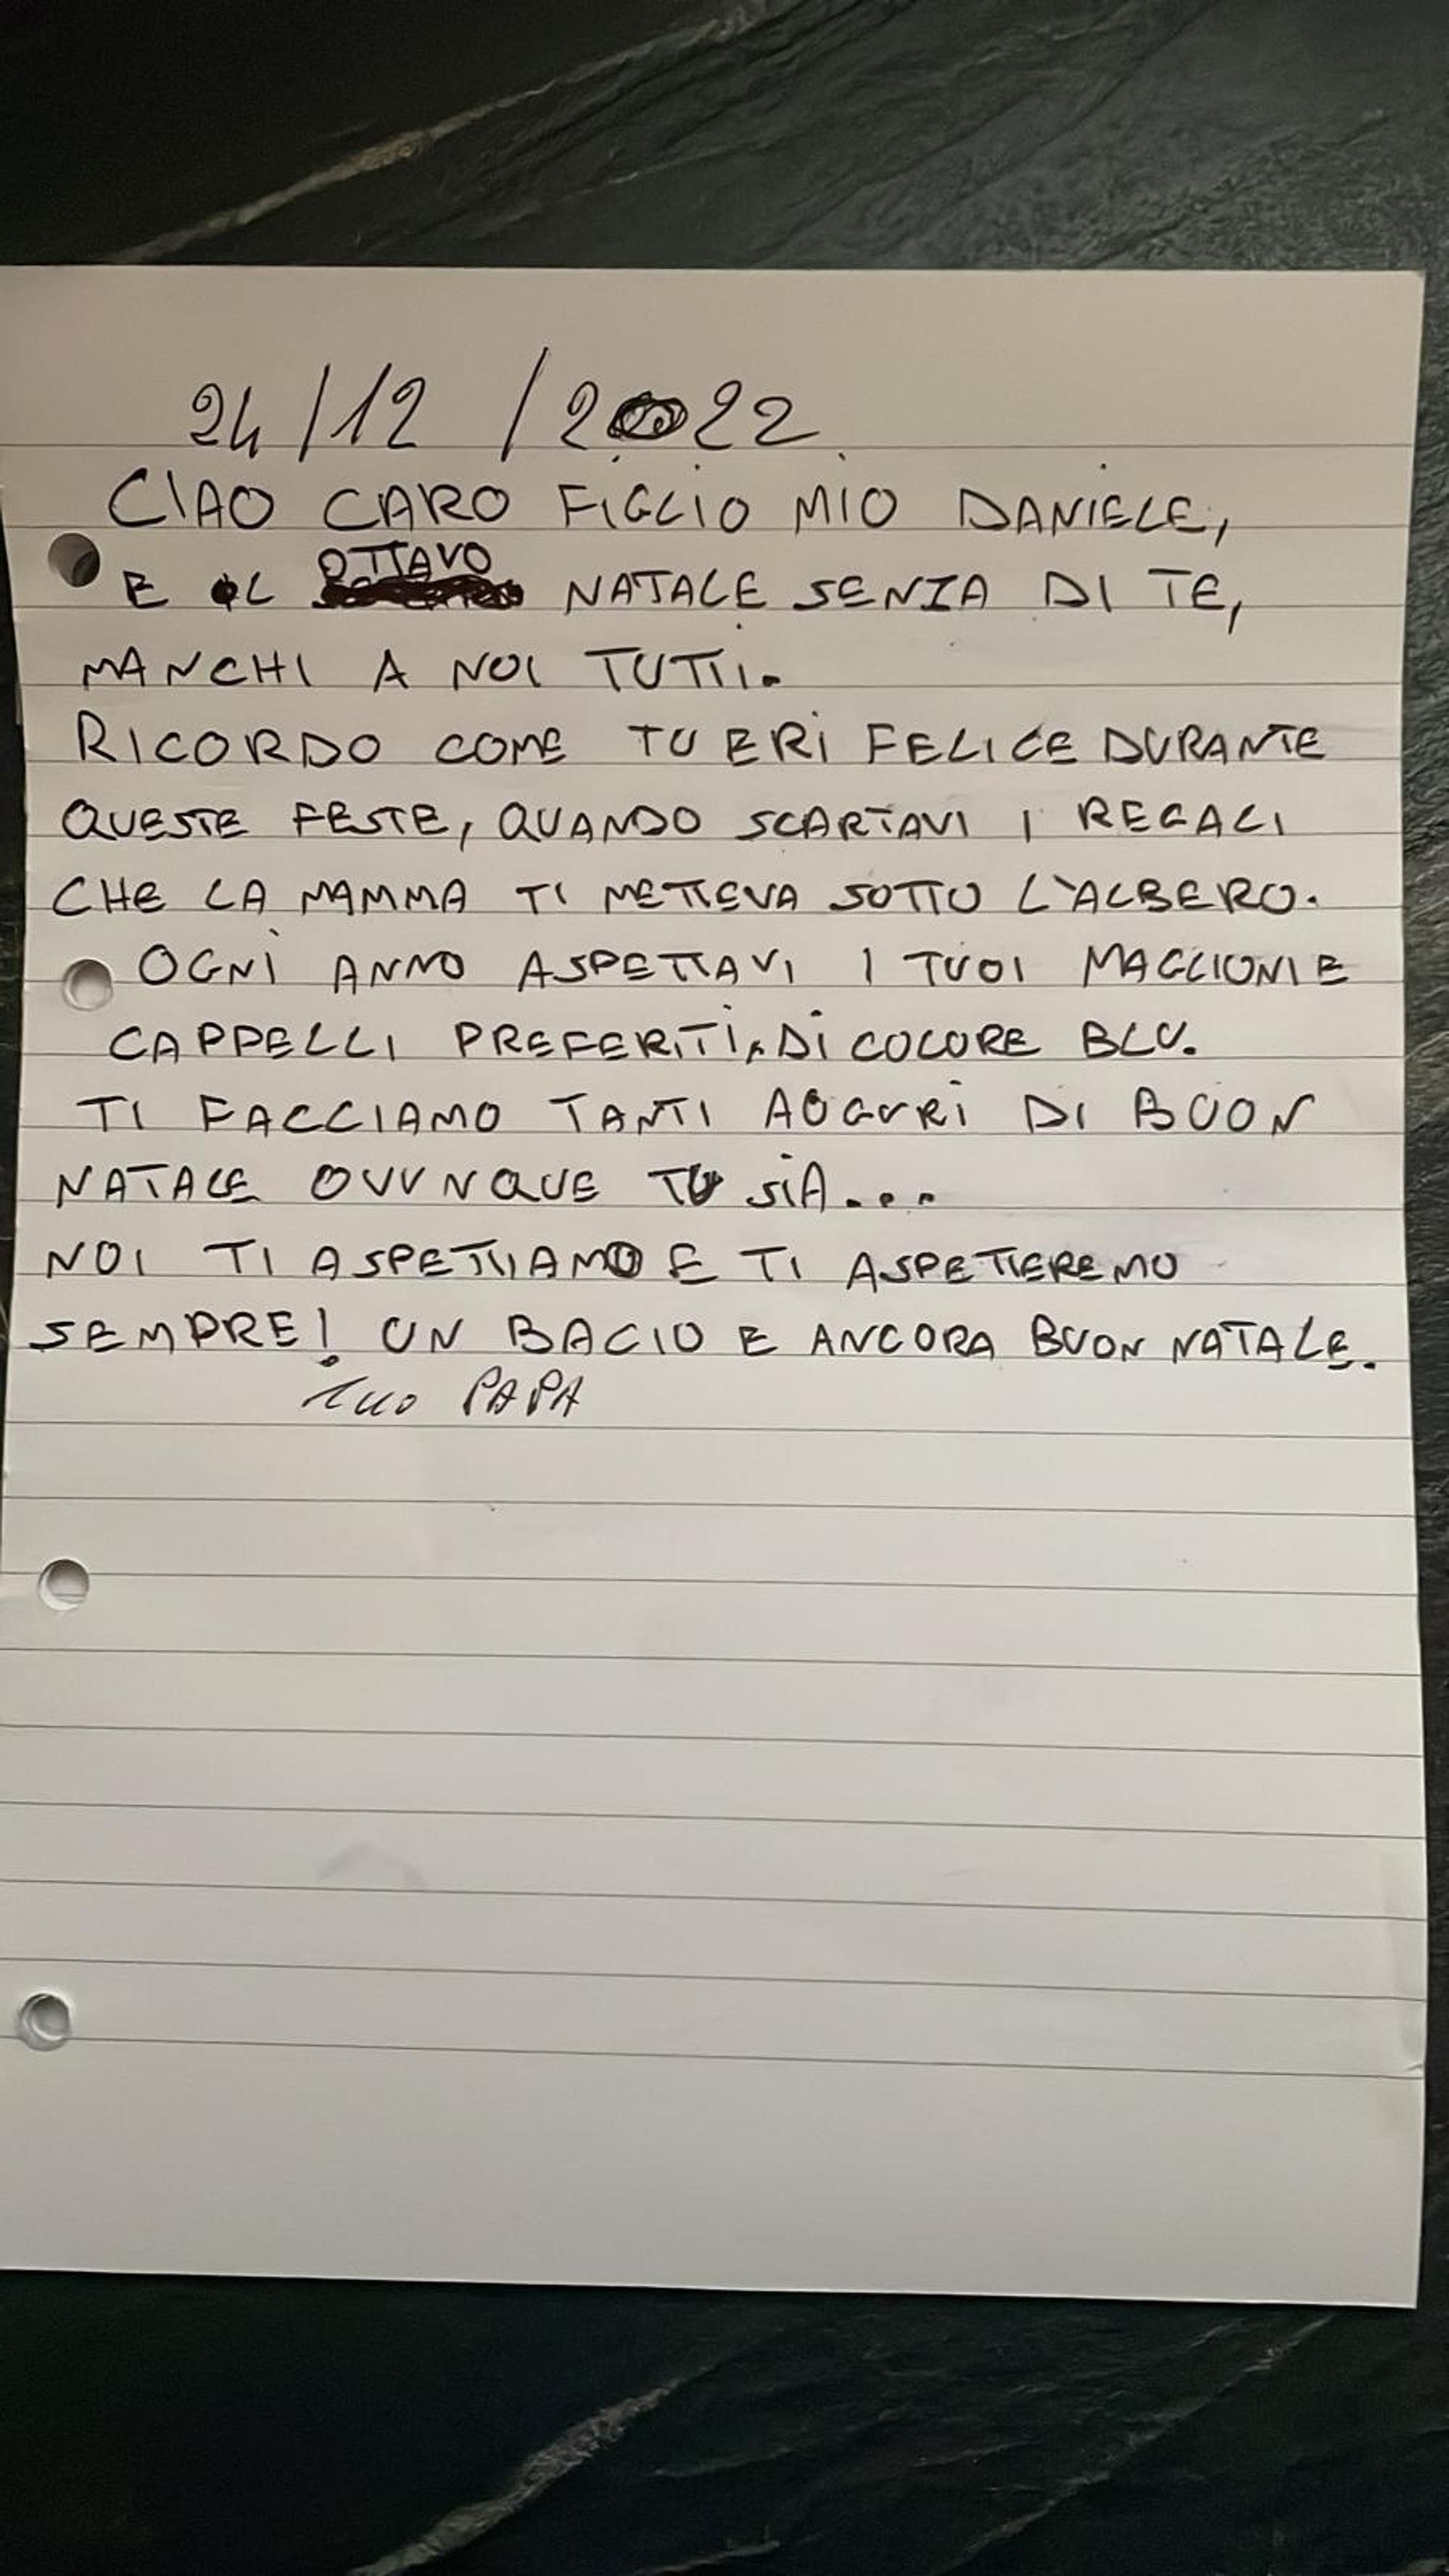 24/12/2022
CIAO CARO FIGLIO MIO DANIELE,
E IL OTTAVO NATALE SENZA DI TE,
MANCHI A NOI TUTTI.
RICORDO COME TU ERI FELICE DURANTE
QUESTE FESTE, QUANDO SCARTAVI I REGALI
CHE LA MAMMA TI METTEVA SOTTO L'ALBERO.
OGNI ANNO ASPETTAVI I TUOI MAGLIONI E
CAPPELLI PREFERITI, DI COLORE BLU.
TI FACCIAMO TANTI AUGURI DI BUON
NATALE OVUNQUE TU SIA...
NOI TI ASPETTIAMO E TI ASPETTEREMO
SEMPRE! UN BACIO E ANCORA BUON NATALE.
tuo PAPA